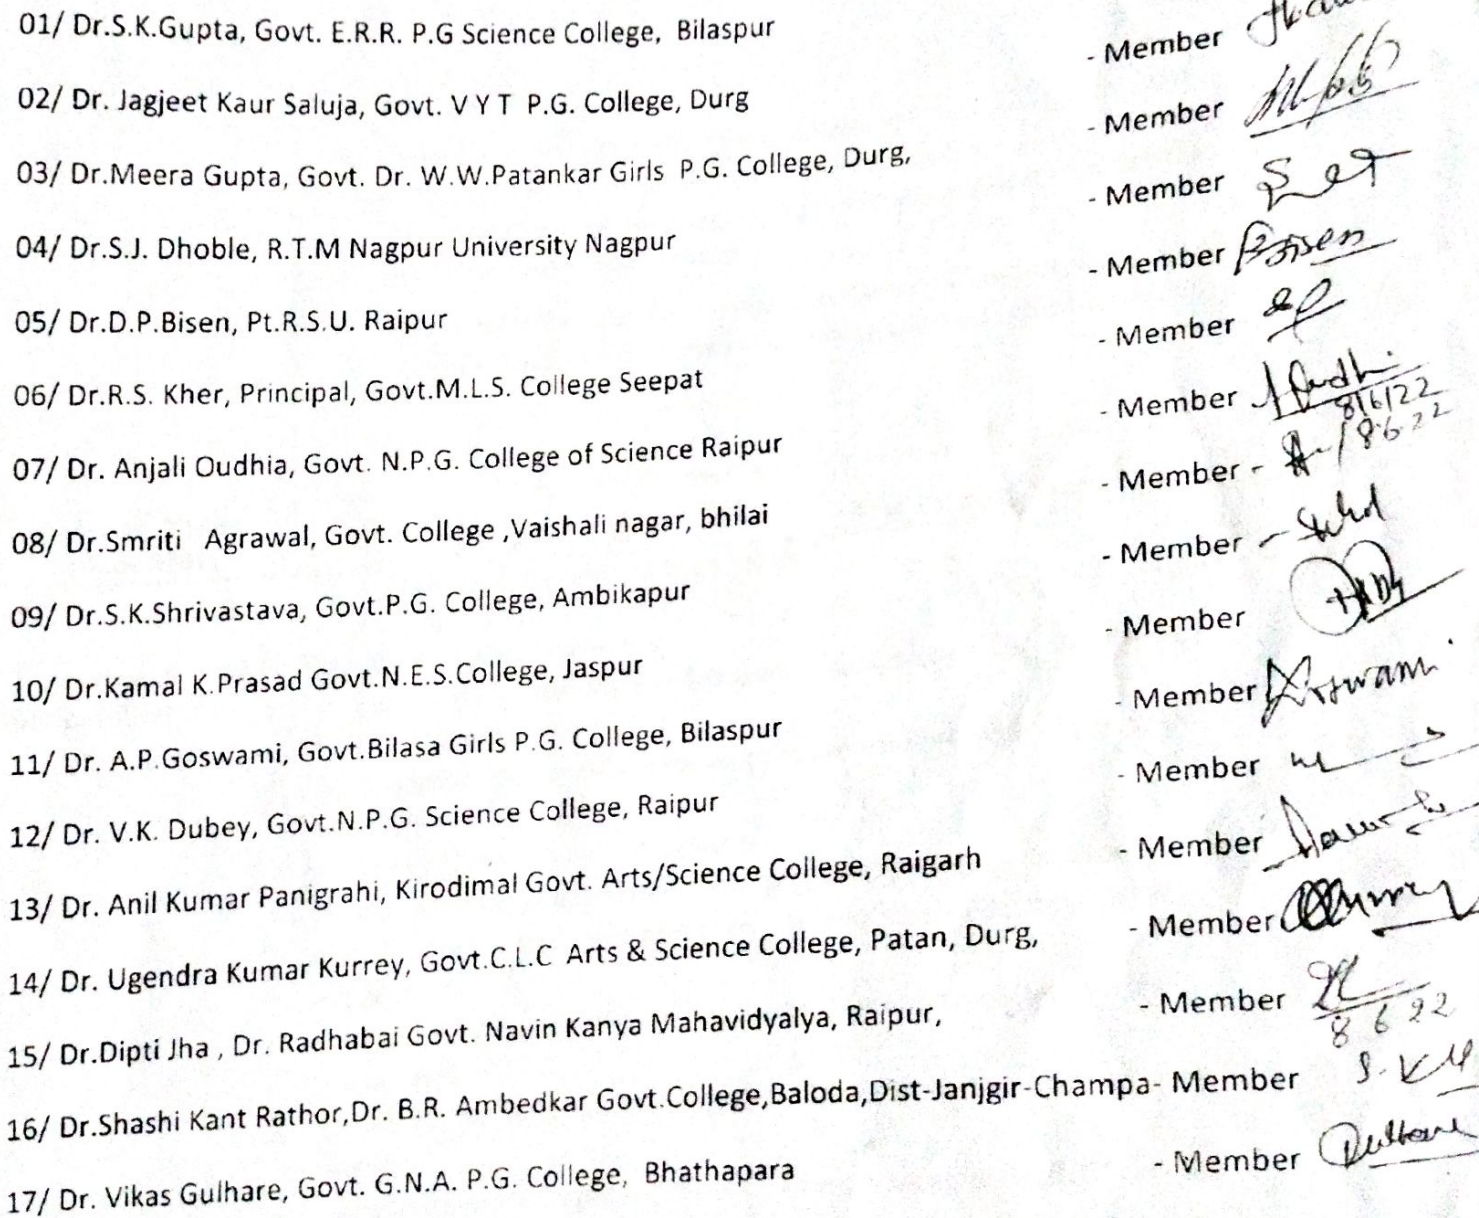 01/ Dr.S.K.Gupta, Govt. E.R.R. P.G Science College, Bilaspur - Member
02/ Dr. Jagjeet Kaur Saluja, Govt. V Y T P.G. College, Durg - Member
03/ Dr.Meera Gupta, Govt. Dr. W.W.Patankar Girls P.G. College, Durg, - Member
04/ Dr.S.J. Dhoble, R.T.M Nagpur University Nagpur - Member Bisen
05/ Dr.D.P.Bisen, Pt.R.S.U. Raipur - Member
06/ Dr.R.S. Kher, Principal, Govt.M.L.S. College Seepat - Member 8/6/22
07/ Dr. Anjali Oudhia, Govt. N.P.G. College of Science Raipur - Member - 8.6.22
08/ Dr.Smriti Agrawal, Govt. College ,Vaishali nagar, bhilai - Member -
09/ Dr.S.K.Shrivastava, Govt.P.G. College, Ambikapur - Member
10/ Dr.Kamal K.Prasad Govt.N.E.S.College, Jaspur - Member
11/ Dr. A.P.Goswami, Govt.Bilasa Girls P.G. College, Bilaspur - Member
12/ Dr. V.K. Dubey, Govt.N.P.G. Science College, Raipur - Member
13/ Dr. Anil Kumar Panigrahi, Kirodimal Govt. Arts/Science College, Raigarh - Member
14/ Dr. Ugendra Kumar Kurrey, Govt.C.L.C Arts & Science College, Patan, Durg, - Member
15/ Dr.Dipti Jha , Dr. Radhabai Govt. Navin Kanya Mahavidyalya, Raipur, - Member 8 6 22
16/ Dr.Shashi Kant Rathor,Dr. B.R. Ambedkar Govt.College,Baloda,Dist-Janjgir-Champa- Member
17/ Dr. Vikas Gulhare, Govt. G.N.A. P.G. College, Bhathapara - Member